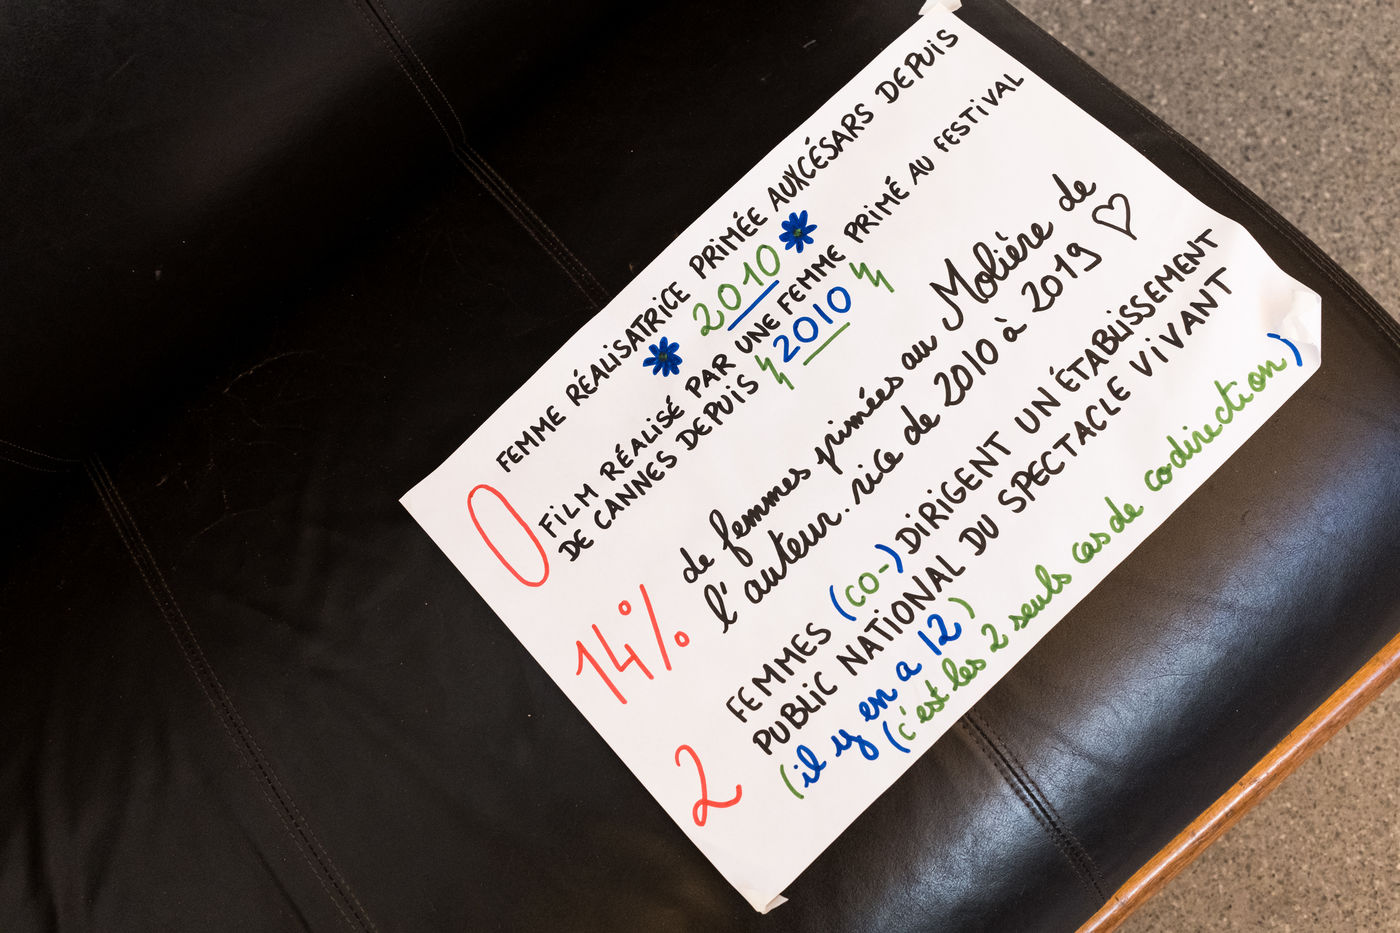 FEMME RÉALISATRICE PRIMÉE AUX CÉSARS DEPUIS
2010
0 FILM RÉALISÉ PAR UNE FEMME PRIMÉ AU FESTIVAL
DE CANNES DEPUIS 2010
14% de femmes primées au Molière de
l'auteur.rice de 2010 à 2019
2 FEMMES (CO-) DIRIGENT UN ÉTABLISSEMENT
PUBLIC NATIONAL DU SPECTACLE VIVANT
(il y en a 12)
(c'est les 2 seuls cas de codirection)